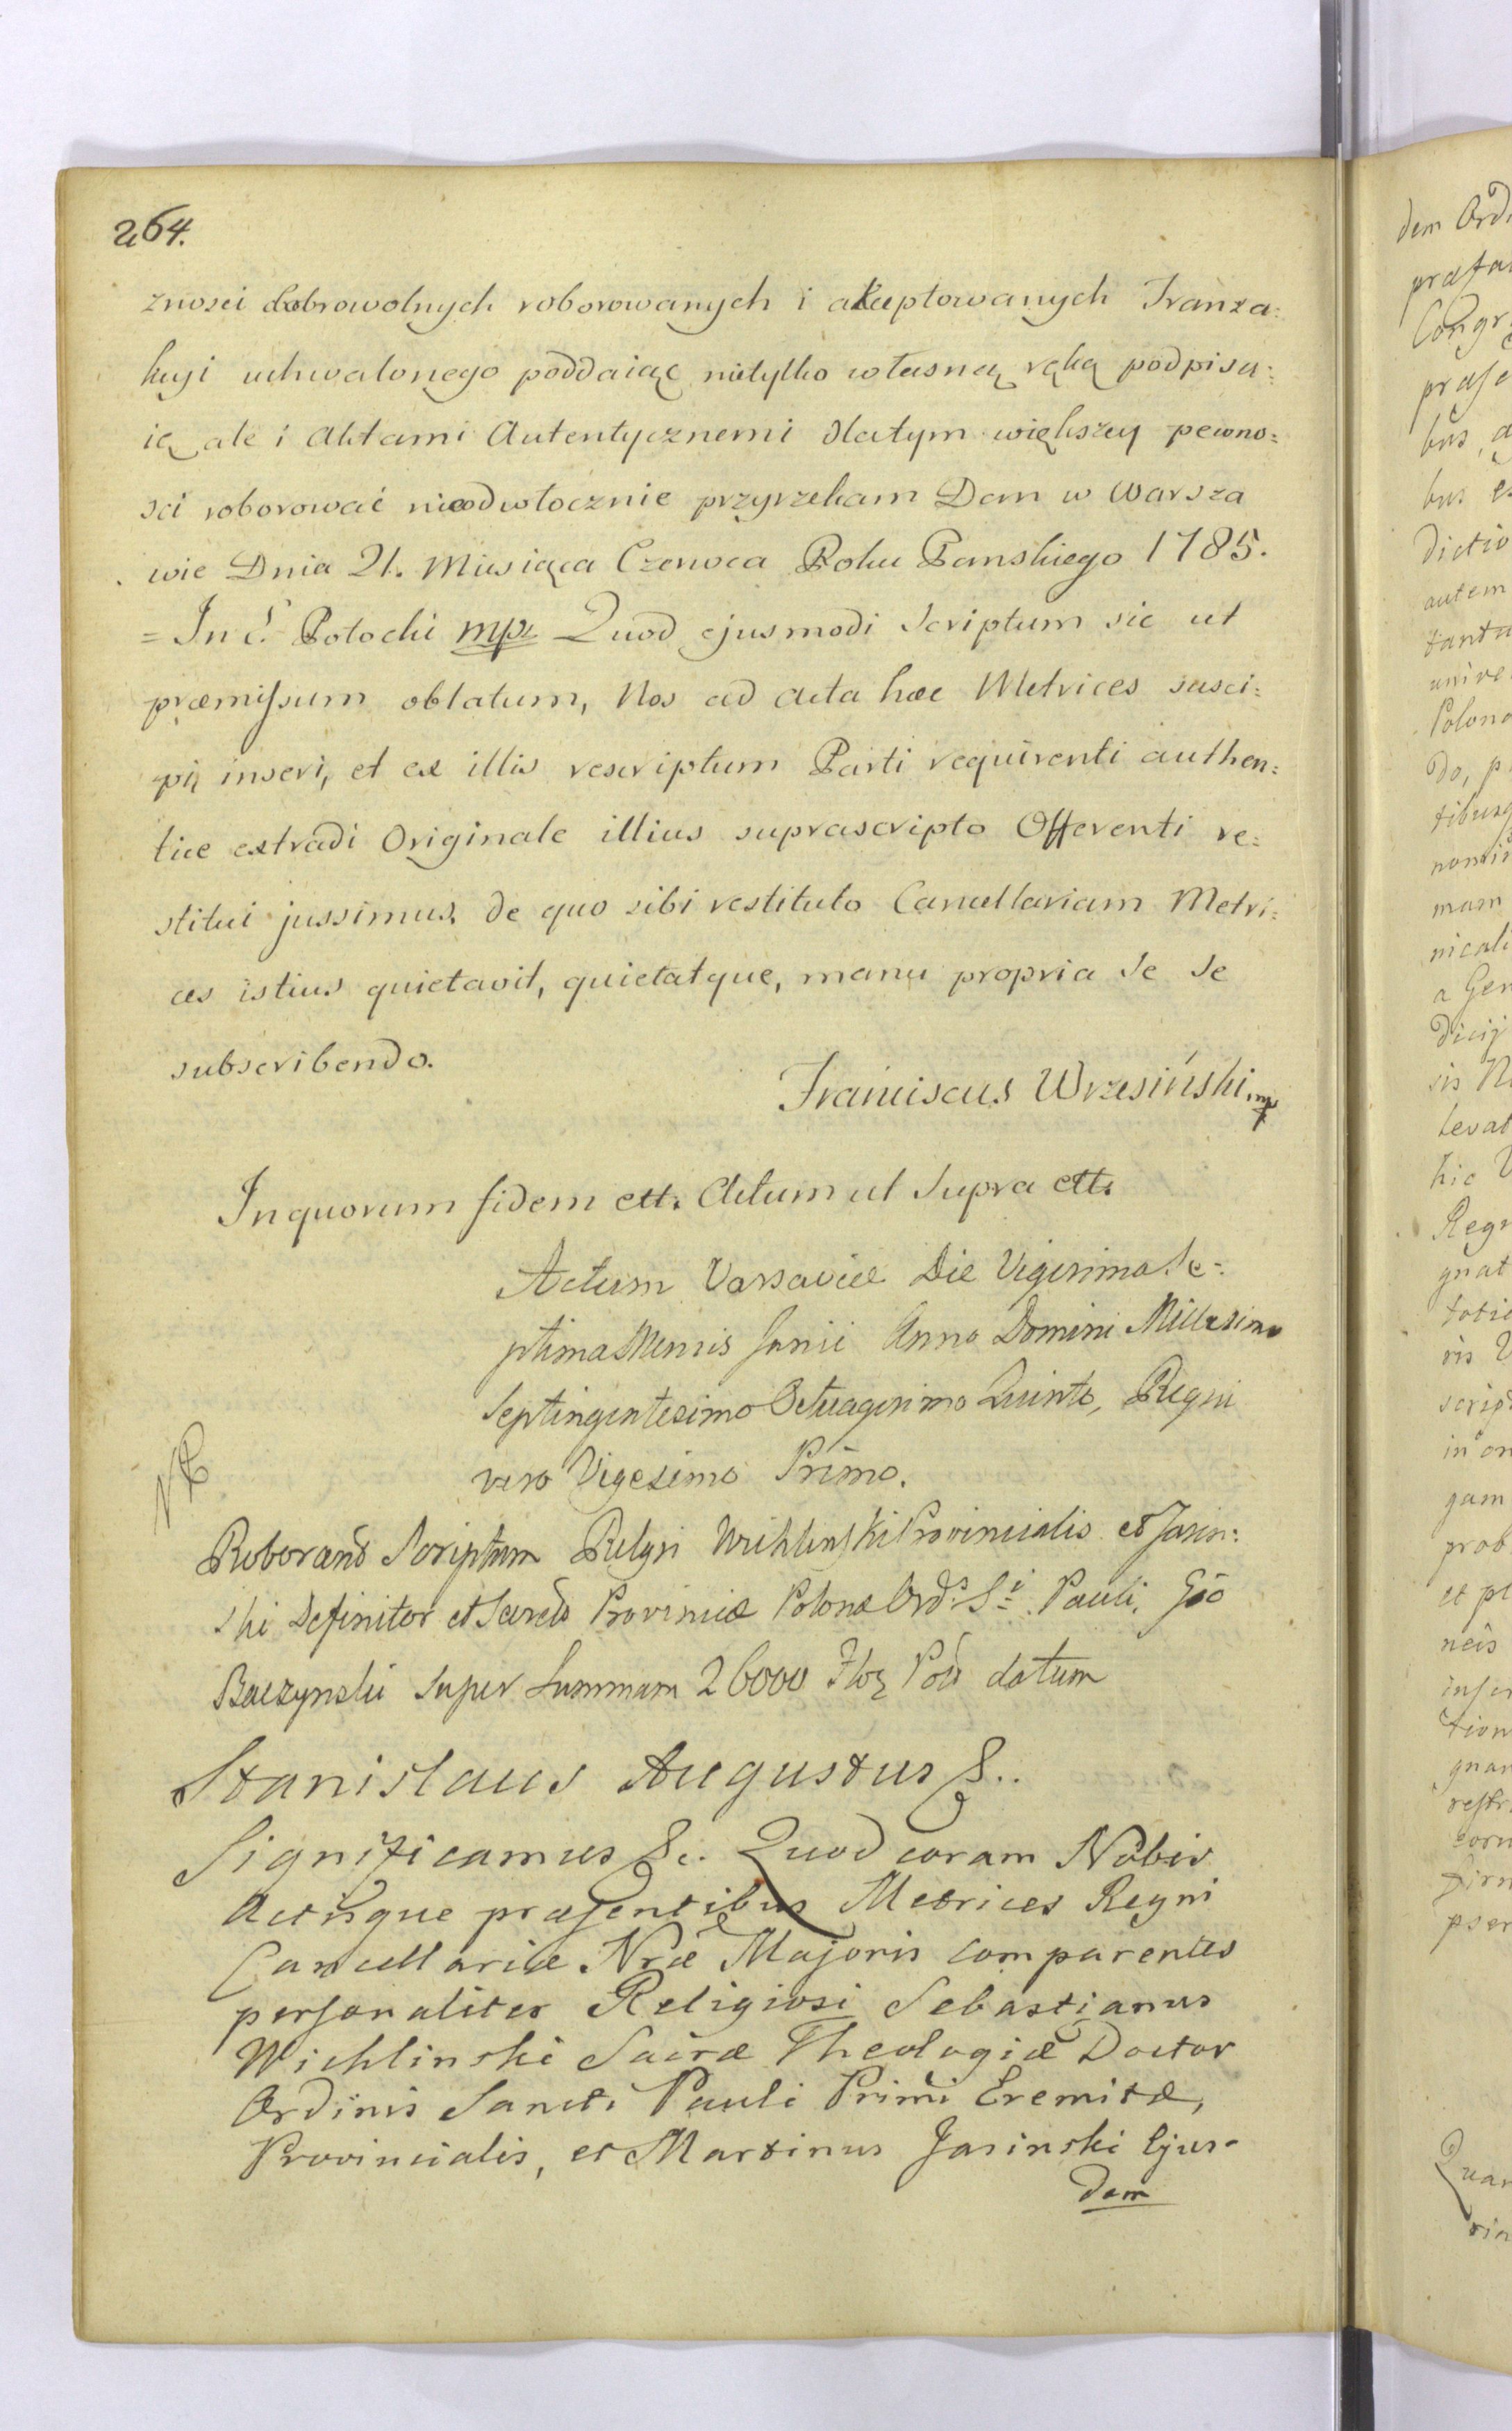 264.
znosci dobrowolnych roborowanych i akceptowanych Tranza=
kcyi uchwalonego poddaiąc nietylko własną ręką podpisu=
ię ale i Aktami Autentycznemi dlatym większey pewno=
sci roborować nieodwłocznie przyrzekam Dan w Warsza
wie Dnia 21. Miesiąca Czerwca Roku Panskiego 1785.
= Potocki mp Quod ejusmodi Scriptum sic ut
præmissum oblatum, Nos ad Acta hæc Metrices susci=
pi, inseri, et ex illis rescriptum Parti requirenti authen=
tice extradi Originale illius suprascripto Offerenti re=
stitui jussimus, de quo sibi restituto Cancellariam Metri=
ces istius quietavit, quietatque, manu propria Se Se
subscribendo.
Franciscus Wrzesiński mp
In quorum fidem ett. Actum ut Supra ett.
Actum Varsaviæ Die Vigesima Se=
ptima Mensis Junii Anno Domini Millesimo
Septingentesimo Octuagesimo Quinto, Regni
vero Vigesimo Primo.
Roborand Scriptum Relgsi Wichlinski Provincialis et Jasin=
ski Definitor et Secrets Provinciæ Polonæ Ords Sti Pauli, Gso
Baczynski super Summam 26000 datum
Stanislaus Augustus &..
Significamus &c. Quod coram Nobis
Actisque præsentibus Metrices Regni
Cancellariæ Nræ Majoris comparentes
personaliter Religiosi Sebastianus
Wichlinski Sacræ Theologiæ Doctor
Ordinis Sancti Pauli Primi Eremitæ,
Provincialis, et Martinus Jasinski Ejus-
dem
dem
Congr
dictio
autem
Polono
mam
a Gen
levat
hic
Regn
gnat
in
gam
prob
et
neis